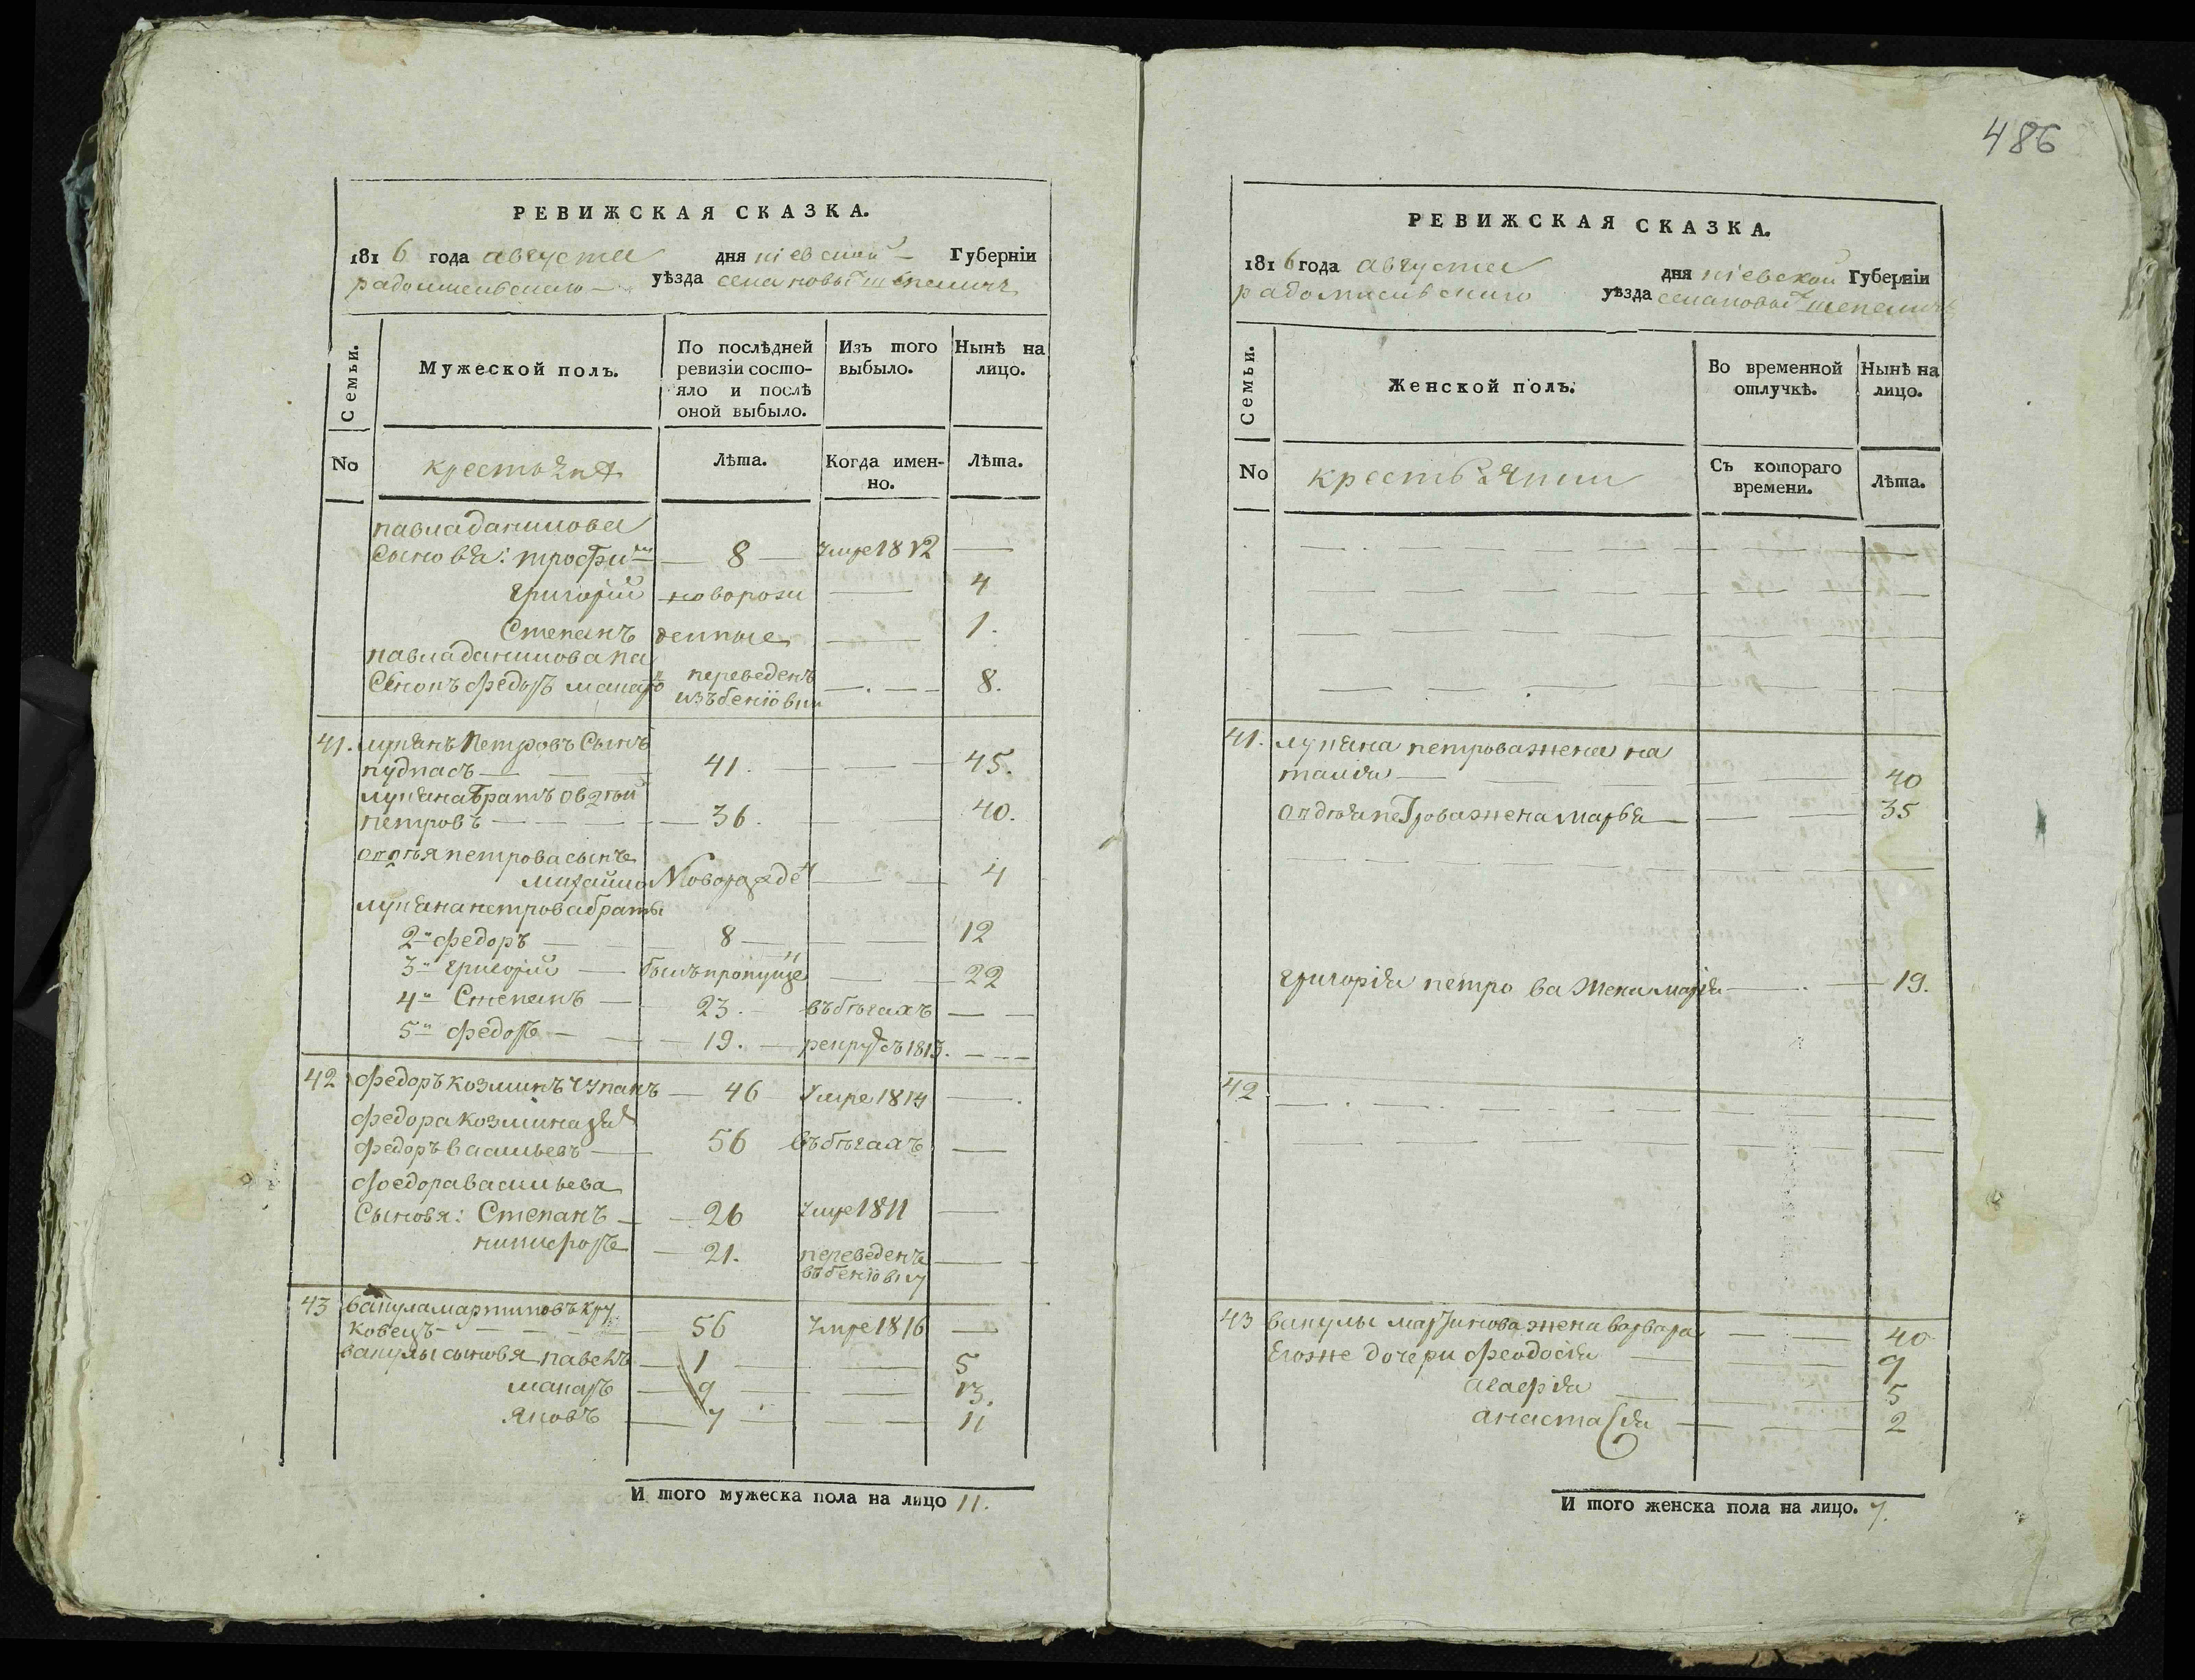 486
РЕВИЖСКАЯ СКАЗКА.
1816 года августа дня кіевской Губерніи
радомисльского уѣзда села новыхъ шепеличъ
Семьи.
Мужеской полъ.
По послѣдней ревизіи состо-
яло и послѣ
оной выбыло.
Изъ того
выбыло.
Нынѣ на
лицо.
No
крестьяня
Лѣта.
Когда имен-
но.
Лѣта.
павла данилова
Сыновя: трофим — 8 — умре 1812 —
григорій новорож — 4
Степанъ денные — 1.
павла данилова па
Сенокъ федоръ макаро переведенъ — 8.
41. лукянъ Петровъ Сынъ
кудкасъ — 41. — 45.
лукяна братъ
петровъ — 36. — 40.
петрова сынъ
михайло Новорожде — 4
лукяна петрова браты
2й федоръ — 8 — 12
3й григорій — былъ пропуще — 22
4й Степанъ — 23. — въ бѣгахъ —
5й — 19. — 1813. —
42 федоръ козминъ — 46 умре 1814 —
федора козмина
федоръ васильевъ — 56 въ бѣгахъ —
федора васильева
Сыновя: Степанъ — 26 умре 1811 —
никифоръ — 21. переведенъ —
43 вакула мартиновъ кру
ковецъ — 56 умре 1816 —
вакулы сыновя павелъ — 1 — 5
макаръ — 9 — 13.
яковъ — 7 — 11
И того мужеска пола на лицо 11.
РЕВИЖСКАЯ СКАЗКА.
1816 года августа дня кіевской Губерніи
радомисльского уѣзда села новыхъ шепеличъ
Семьи.
Женской полъ.
Во временной
отлучкѣ.
Нынѣ на
лицо.
No
крестьянки
Съ котораго
времени.
Лѣта.
41. лукяна петрова жена на
талія — 40
петрова жена марья — 35
григорія петрова жена марія — 19.
42
43 вакулы мартинова жена варвара — 40
Егоже дочери феодосія — 9
агафія — 5
анастасія — 2
И того женска пола на лицо. 7.